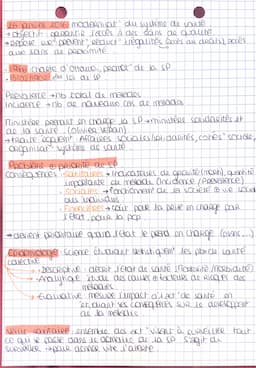 26 janvier 2016 modernisat° du système de santé
→ objectif : garantir l'accès à des soins de qualité
→ repose sur prévent°, réduct° inégalités, accès au droit, accès aux soins de proximité.
charte d'Ottawa, promot° de la SP
Prévalence → nb total de malades
Incidence → nb de nouveaux cas de malades
Ministère prenant en charge la SP → ministère solidarités et de la santé. (Olivier Véran)
Affaires sociales, solidarités, cohés° sociale, organisat° système de santé.
Problème et priorité de SP
conséquences
Sanitaires → indicateurs de gravité (mort), quantité importante de malades. (incidence / prévalence)
Sociales → fonctionnemt de la société et vie sociale des individus
Financières → coût pour la prise en charge par l'État, pour la pop
→ devient prioritaire quand l'État le prend en charge (plans, ...)
Épidémiologie : Science étudiant les pb de santé
collective
→ Descriptive : décrit l'état de santé (mortalité/morbidité)
→ Analytique : étude des causes et facteurs de risques des maladies
→ Évaluative : mesure l'impact d'1 act° de santé en étudiant ses conséquences sur le développemt de la maladie
Veille sanitaire : ensemble des act° visant à surveiller tout ce qui se passe dans le domaine de la SP. S'agit de surveiller → pour donner vite l'alerte.